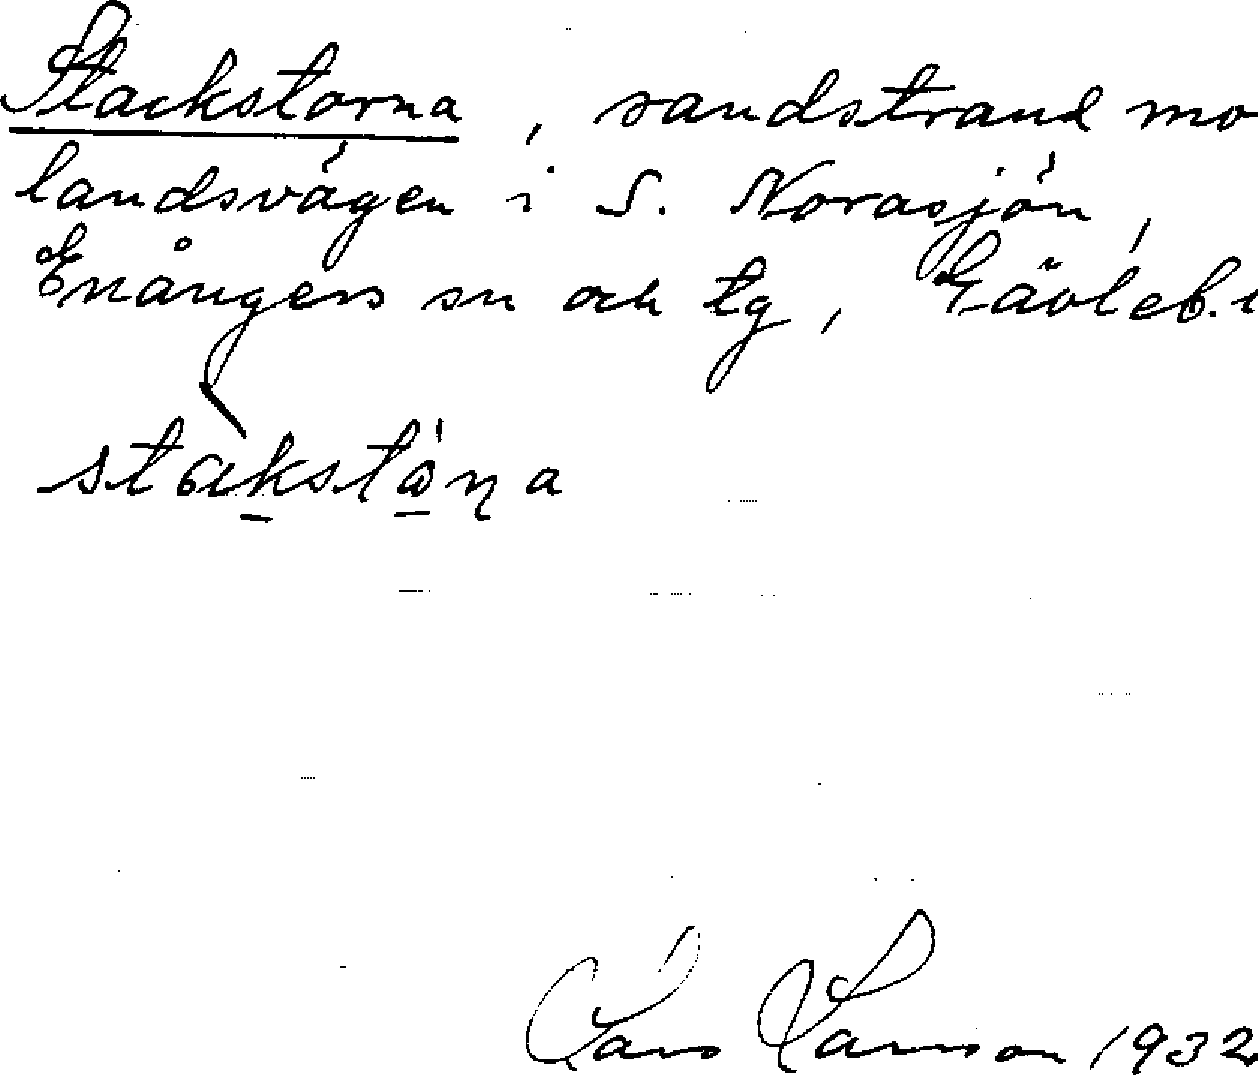 Stackstorna, sandstrand mo
landsvägen i S. Norasjön,
Enångers sn och tg, Gävleb. 
stakstω̱ṇa
Lars Larsson 1932